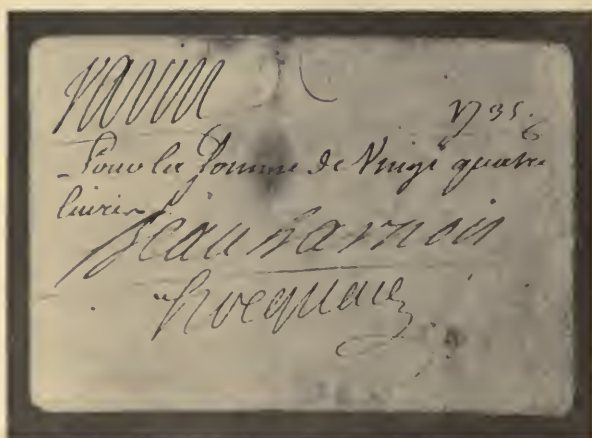 Varin
1735.
Pour la Somme de Vingt quatre
livres
Beauharnois
Hocquart